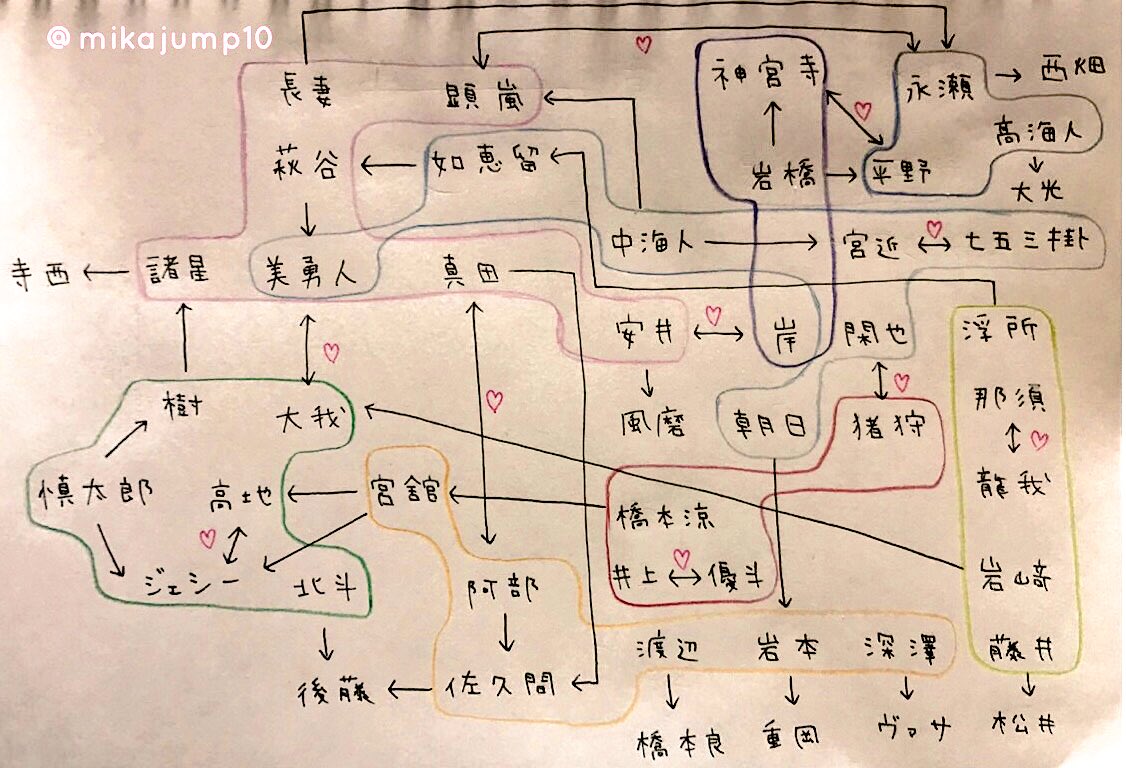 @mikajump10
長妻
顕嵐
神宮寺
永瀬
西畑
高海人
萩谷
如恵留
岩橋
平野
大光
中海人
宮近
七五三掛
寺西
諸星
美勇人
真田
安井
岸
閑也
浮所
樹
大我
風磨
朝日
猪狩
那須
慎太郎
高地
宮舘
橋本涼
龍我
ジェシー
北斗
阿部
井上
優斗
岩崎
渡辺
岩本
深澤
藤井
後藤
佐久間
橋本良
重岡
ヴァサ
松井